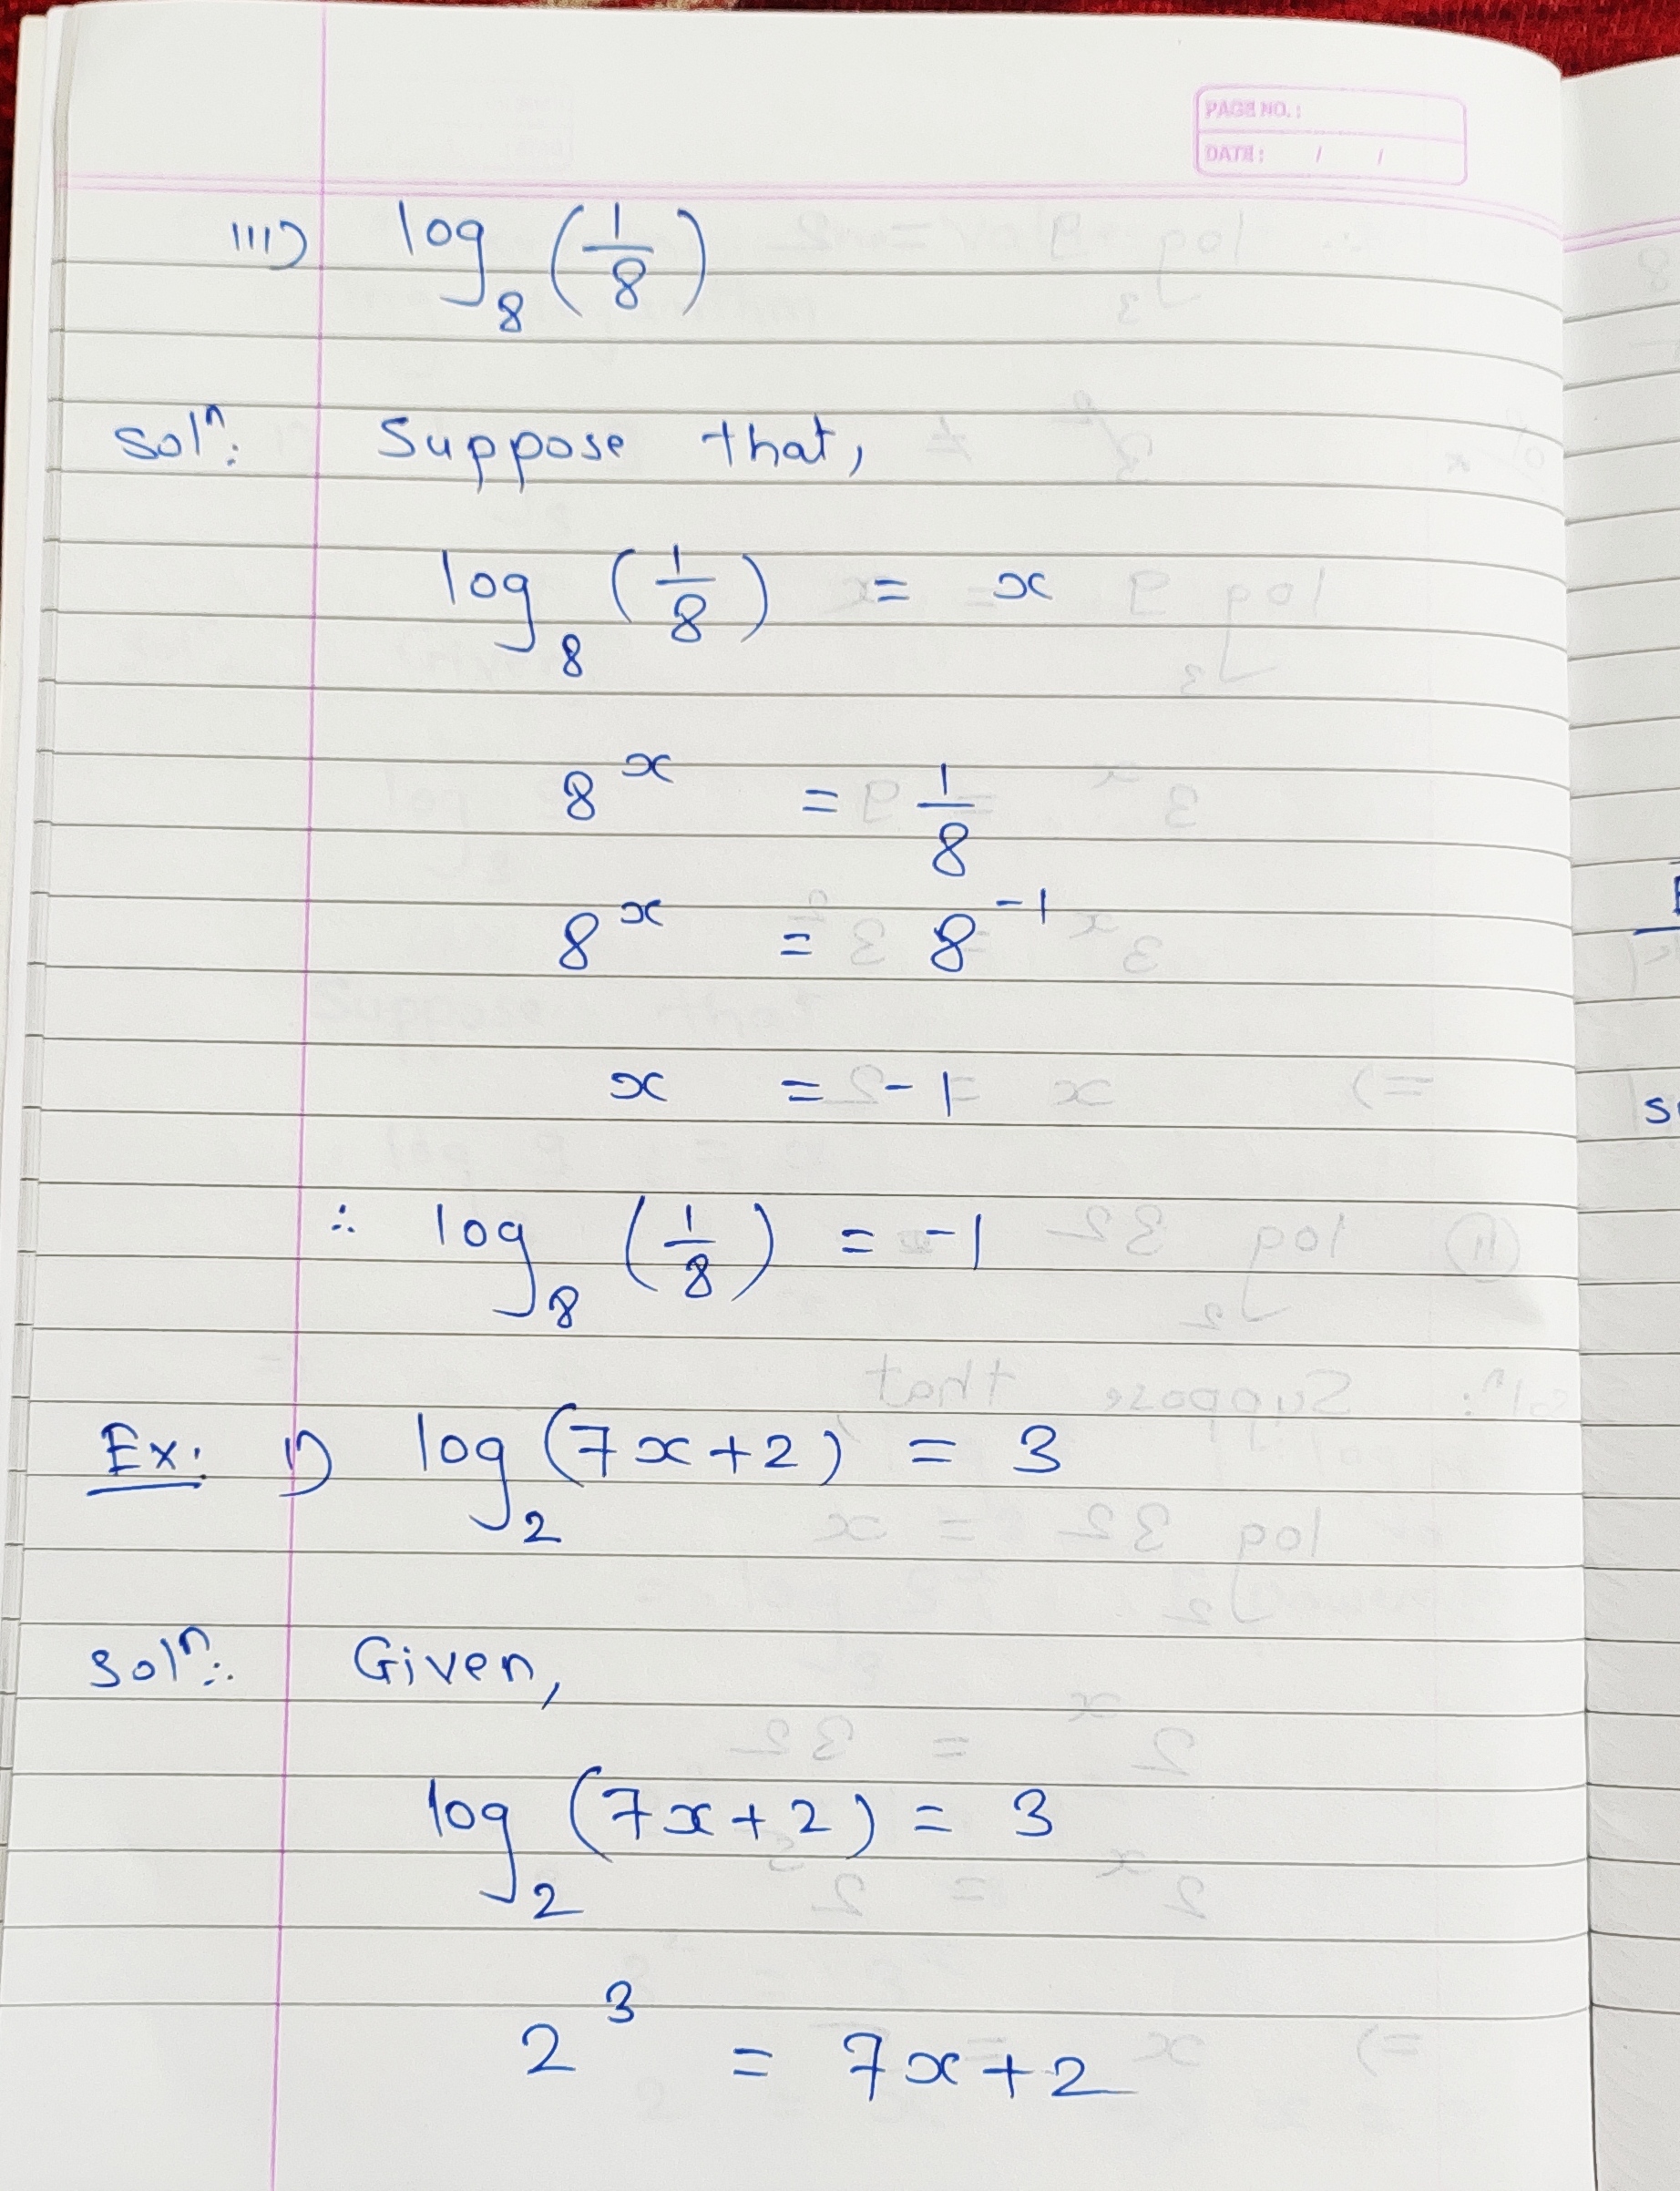 PAGE NO.:
DATE: / /
iii) log₈ (1/8)
Solⁿ: Suppose that,
log₈ (1/8) = x
8^x = 1/8
8^x = 8^-1
x = -1
∴ log₈ (1/8) = -1
Ex: i) log₂ (7x+2) = 3
Solⁿ: Given,
log₂ (7x+2) = 3
2^3 = 7x+2